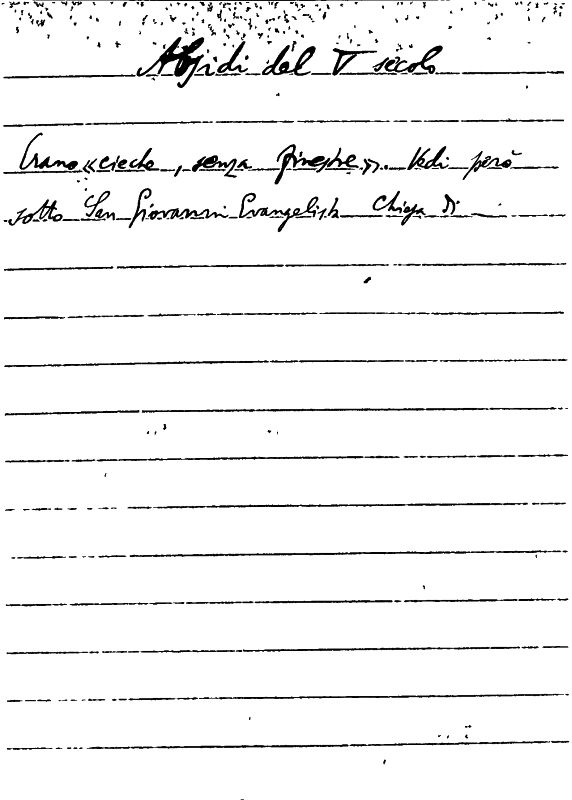 Absidi del V secolo
Erano «cieche, senza finestre». Vedi però
sotto San Giovanni Evangelista Chiesa di